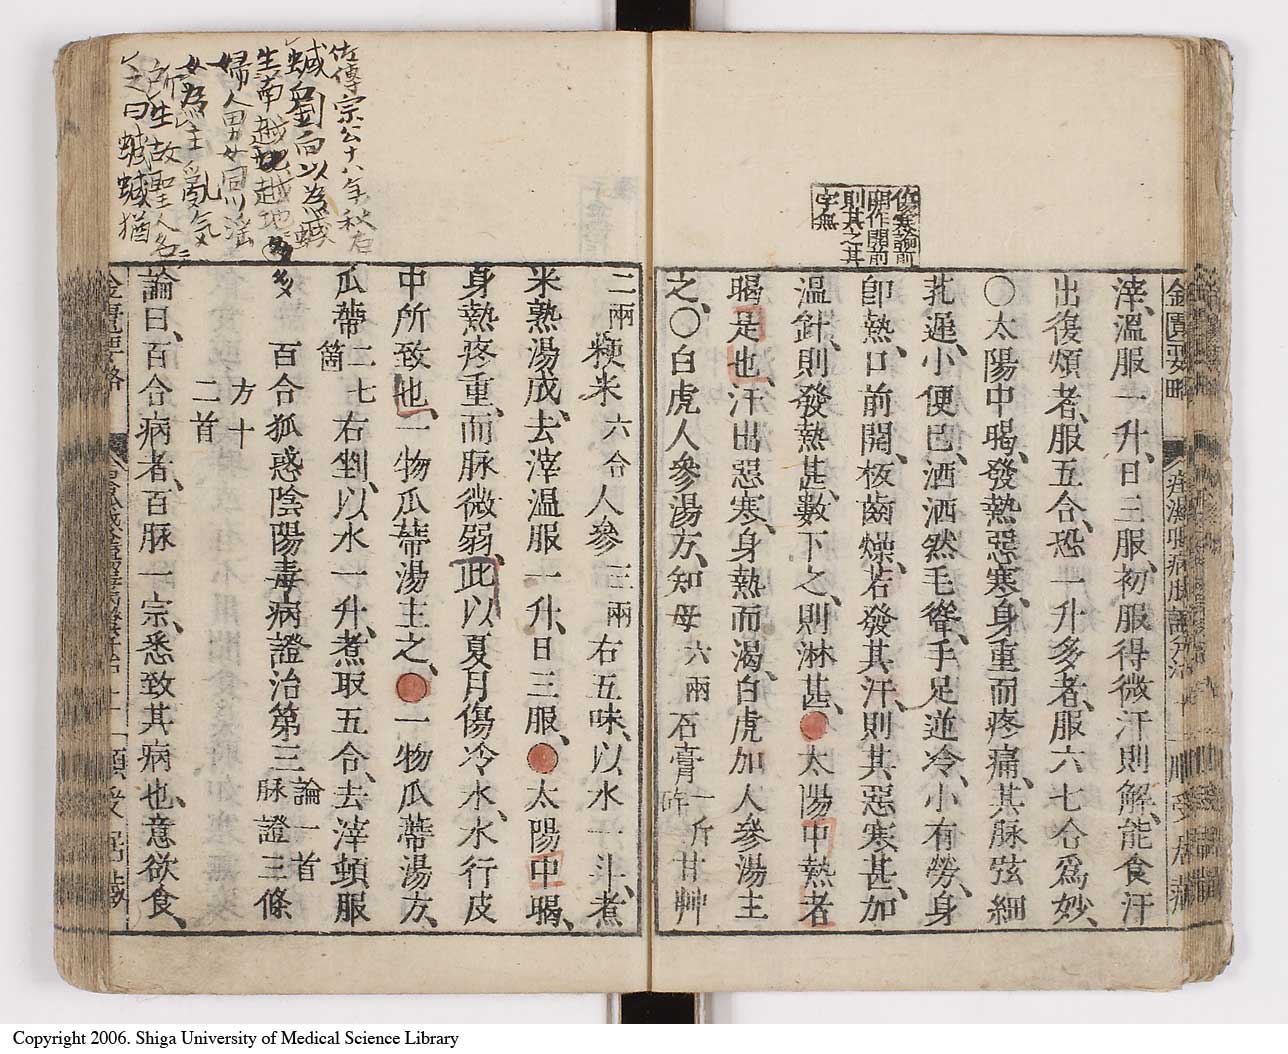 傷寒論前
開作開前
則其之甚
字無
金匱要略
滓、溫服一升、日三服、初服得微汗則解、能食汗
出復煩者、服五合、恐一升多者、服六七合爲妙、
○太陽中暍、發熱惡寒、身重而疼痛、其脉弦細
芤遲、小便已、洒洒然毛聳、手足逆冷、小有勞、身
卽熱、口前開、板齒燥、若發其汗、則其惡寒甚、加
溫針、則發熱甚、數下之、則淋甚、太陽中熱者
暍是也、汗出惡寒、身熱而渴、白虎加人參湯主
之、○白虎人參湯方、知母六兩石膏一斤碎甘艸
二兩粳米六合人參三兩右五味、以水一斗、煮
米熟湯成、去滓溫服一升、日三服、太陽中暍、
身熱疼重、而脉微弱、此以夏月傷冷水、水行皮
中所致也、一物瓜蒂湯主之、一物瓜蒂湯方、
瓜蒂二七箇右剉、以水一升、煮取五合、去滓頓服
百合狐惑陰陽毒病證治第三論一首脉證三條
方十二首
論曰、百合病者、百脉一宗、悉致其病也、意欲食、
金匱要略
佐傳宗公十八年秋有
蜮劉向以為蜮
生南越越地多
婦人男女同川淫
女為主亂氣
所生故聖人名
之曰蜮蜮猶
多
Copyright 2006. Shiga University of Medical Science Library